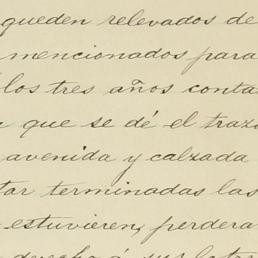 queden relevados de
mencionados para
los tres años conta
que se dé el traz
avenida y calzada
tar terminadas las
estuvieren, perdera
derecho á sus lotes